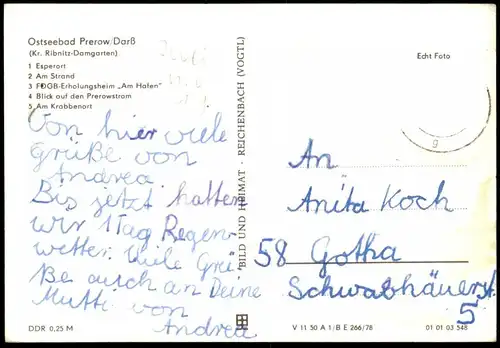 Ostseebad Prerow/Darß
(Kr. Ribnitz-Damgarten)
1 Esperort
2 Am Strand
3 FDGB-Erholungsheim „Am Hafen"
4 Blick auf den Prerowstrom
5 Am Krabbenort
Von hier viele
Grüße von
Andrea.
Bis jetzt hatten
wir 1 Tag Regen-
wetter. Viele Grü-
ße auch an Deine
Mutti von
Andrea
DDR 0,25 M
BILD UND HEIMAT · REICHENBACH (VOGTL)
Echt Foto
g
An
Anita Koch
58 Gotha
Schwabhäuserst.
5
V 11 50 A 1/B E 266/78
01 01 03 548